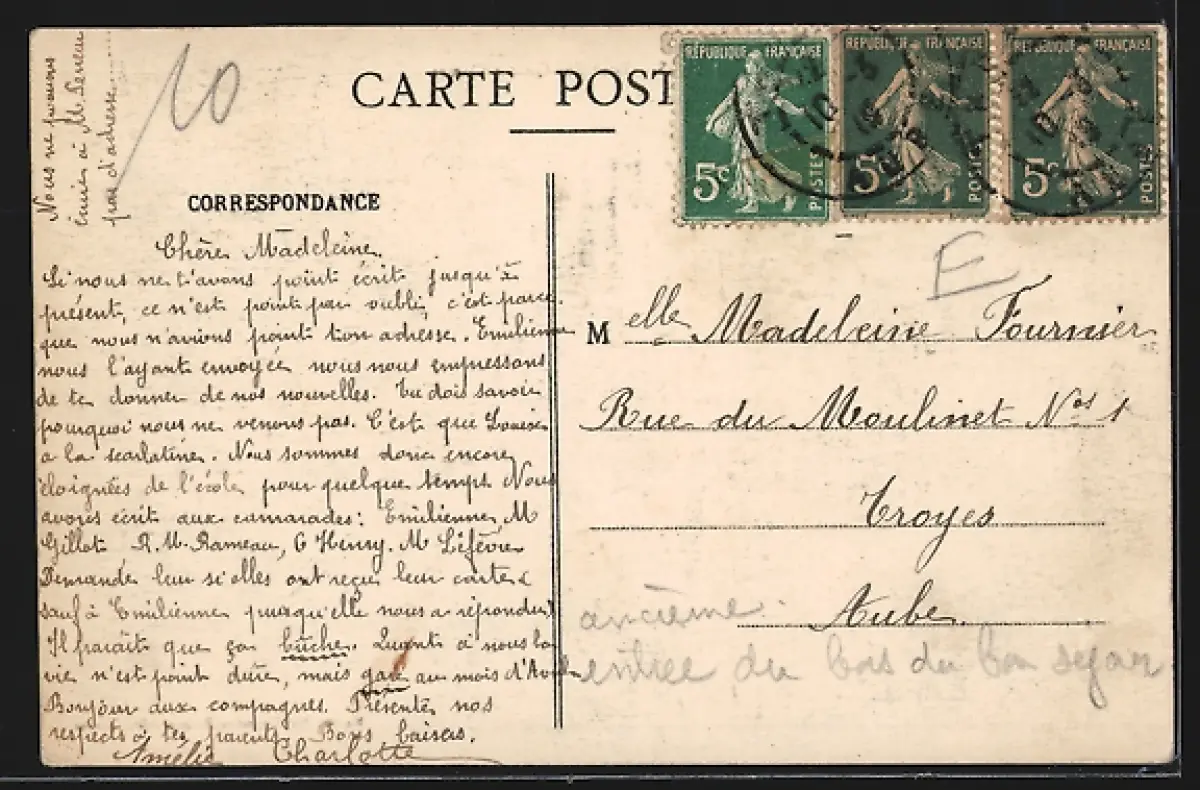 Nous ne pouvons
écrire à M.
pas d'adresse
10
CARTE POST
RÉPUBLIQUE FRANÇAISE
5c
POSTES
RÉPUBLIQUE FRANÇAISE
5c
POSTES
RÉPUBLIQUE FRANÇAISE
5c
POSTES
CORRESPONDANCE
Chère Madeleine.
Si nous ne t'avons point écrit jusqu'à
présent, ce n'est point par oubli, c'est parce
que nous n'avions point ton adresse. Emilienne
nous l'ayant envoyée nous nous empressons
de te donner de nos nouvelles. Tu dois savoir
pourquoi nous ne venons pas. C'est que Louise
a la scarlatine. Nous sommes donc encore
éloignées de l'école pour quelque temps. Nous
avons écrit aux camarades: Emilienne, M
Gillot R. M. Rameau, G Henry. M Lefèvre
Demande leur si elles ont reçu leur carte
sauf à Emilienne puisqu'elle nous a répondu
Il paraît que ça bûche. Quant à nous la
vie n'est point dure, mais gare au mois d'Avril
Bonjour aux compagnes. Présente nos
respects à tes parents. Bons baisers.
Amélie Charlotte
E
M elle Madeleine Fournier
Rue du Moulinet Nos 1
Troyes
Aube
ancième
entree du bas du bon sejour